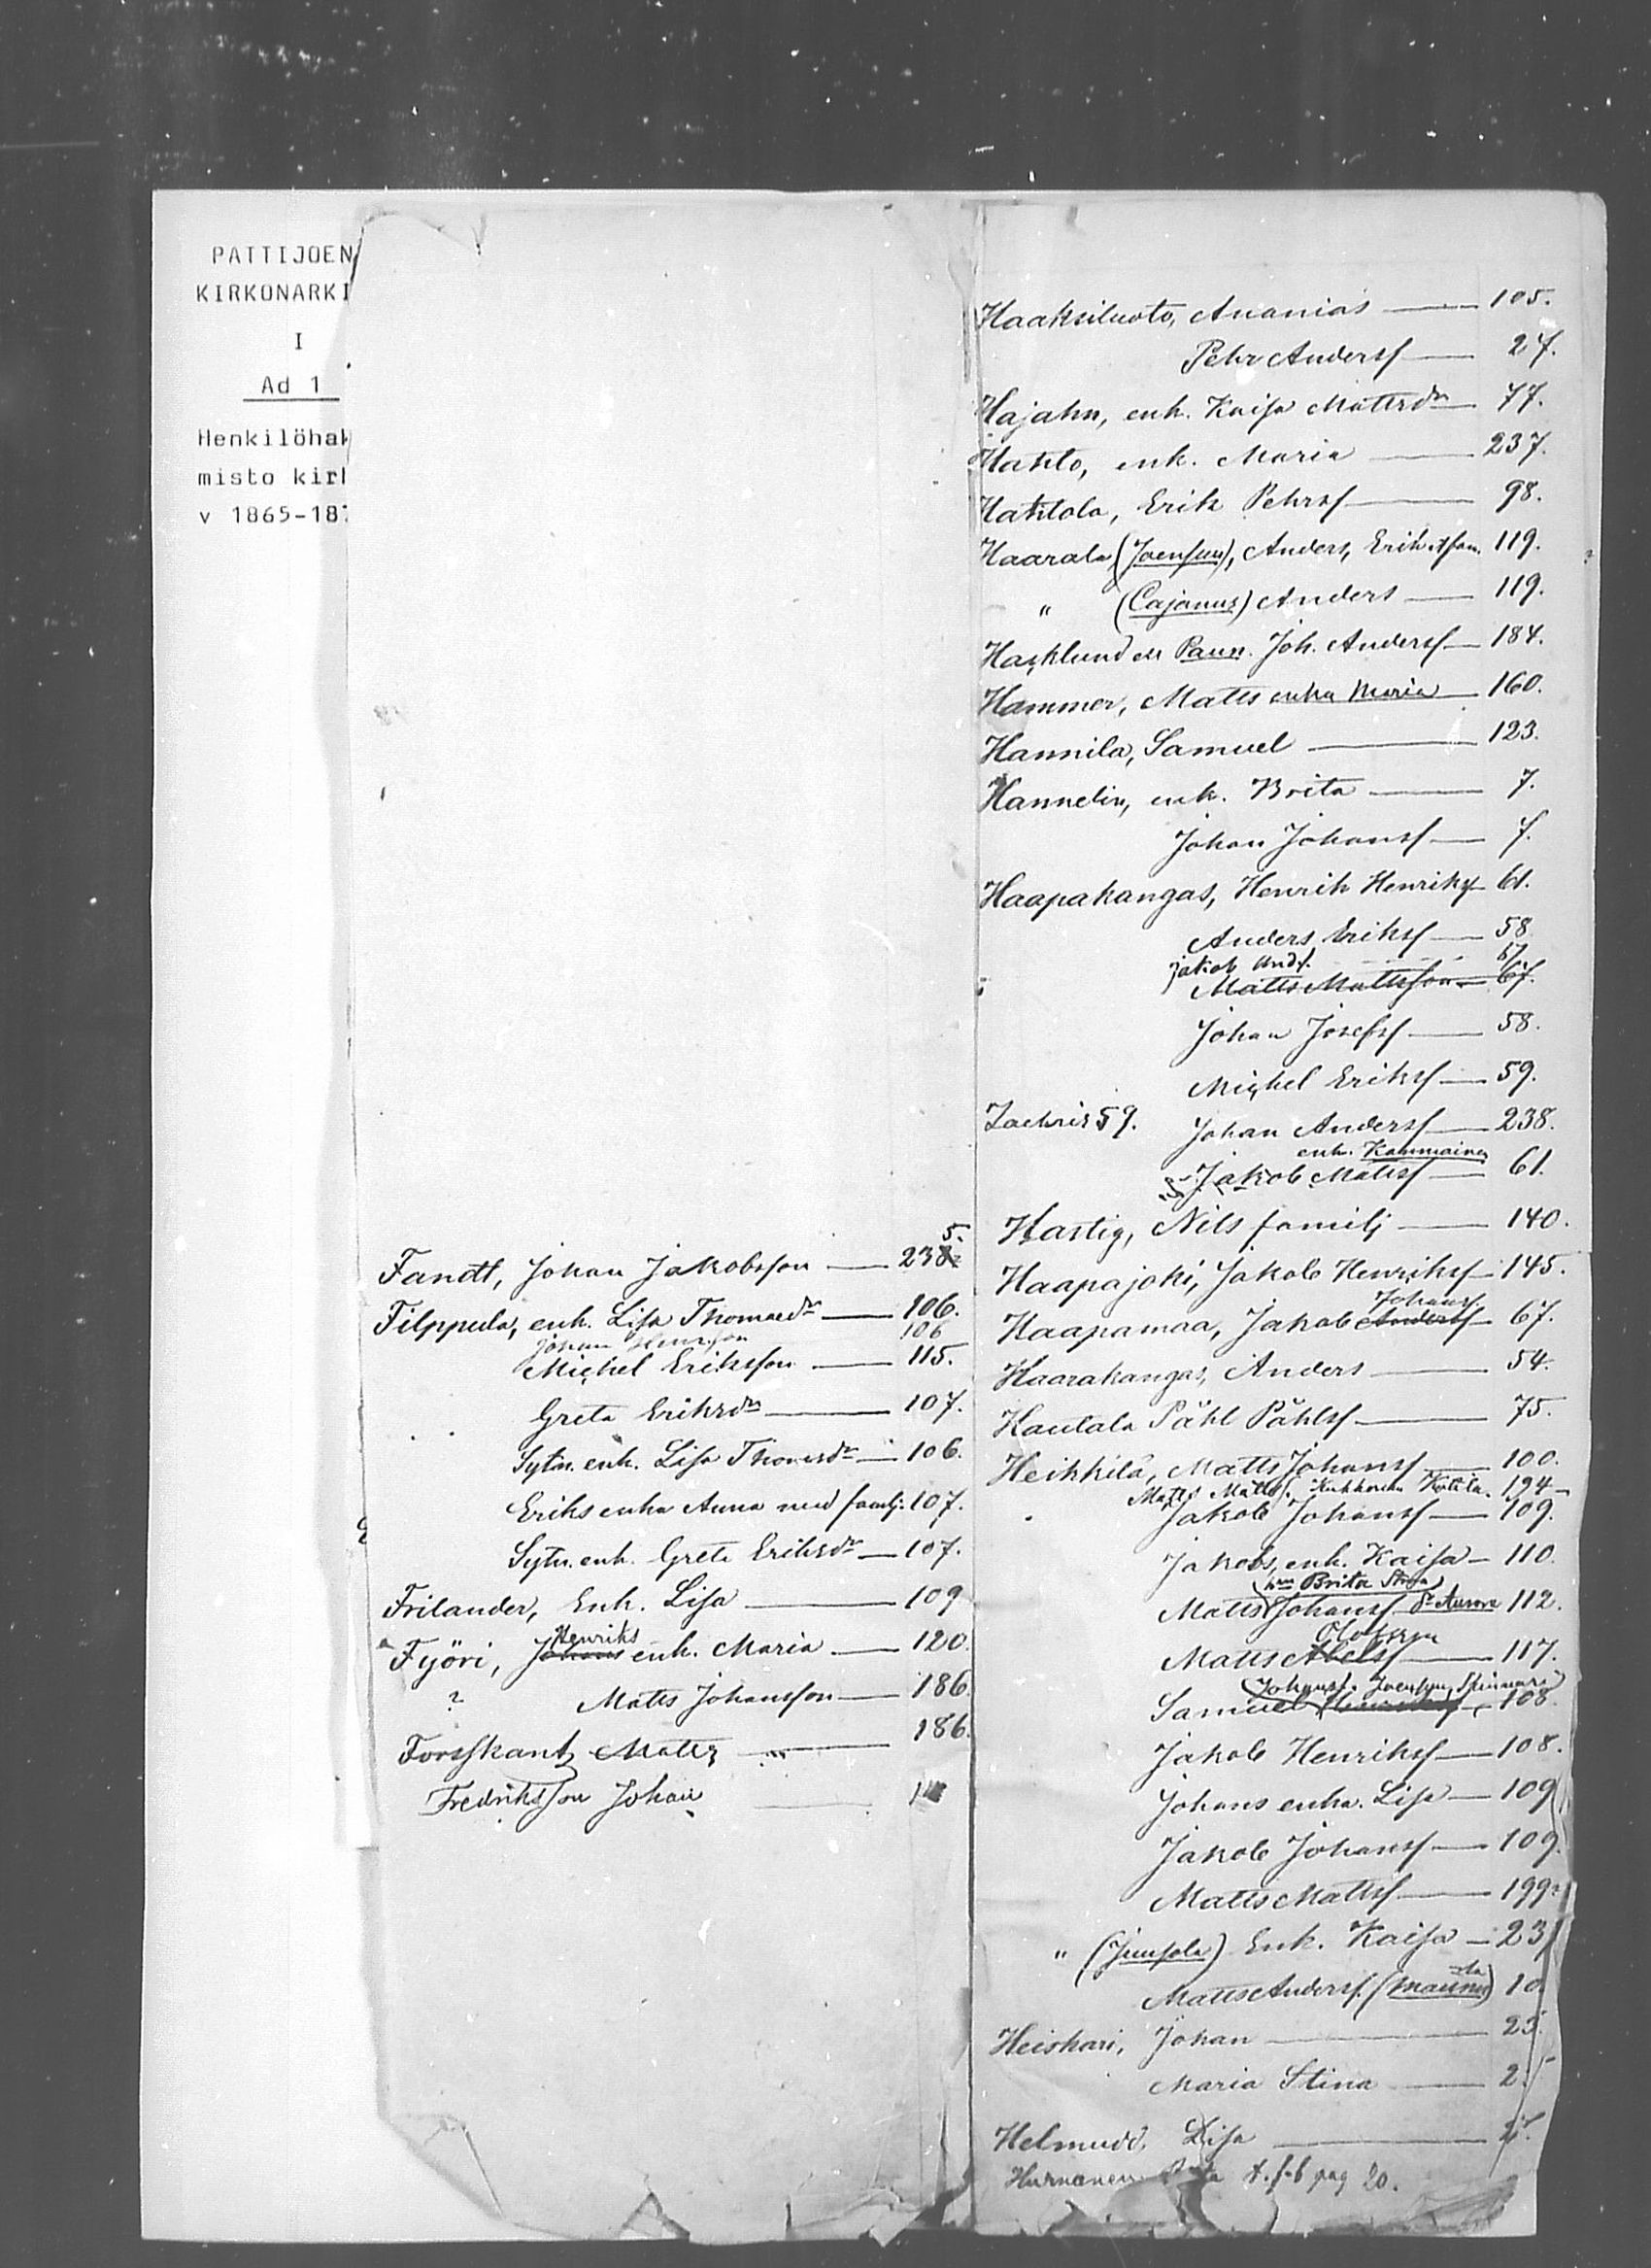 PATTIJOEN
KIRKONARKI
I
Ad 1
Henkilöhak
misto kirl
v 1865-18
Fandt, Johan Jakobsson — 238 5.
Filppula, enk. Lisa Thomasdr — 106.
Johan Henrsson 106
Michel Eriksson — 115.
Greta Eriksdr — 107.
Sytn. enk. Lisa Thomsdr — 106.
Eriks enka Anna med familj. 107.
Sytn. enk. Greta Eriksdr — 107.
Frilander, Enk. Lisa — 109
Henriks
Fyöri, Johans enk. Maria — 120.
? Matts Johansson — 186.
Forsskant, Matts — 186.
Fredriksson Johan
Haaksiluoto, Ananias — 105.
Pehr Andersf — 27.
Hajahn, enk. Kaisa Mattsdr — 77.
Hahto, enk. Maria — 237.
Hahtola, Erik Pehrsf — 98.
Haarala (Joensuu), Anders, Erik 119.
" (Cajanus) Anders — 119.
Hacklund Paun. Joh. Andersf — 184.
Hammer, Matts enka Maria — 160.
Hannila, Samuel — 123.
Hannelin, enk. Brita — 7.
Johan Johansf — 7.
Haapakangas, Henrik Henriksf 61.
Anders Eriksf — 58
Jakob Andf. 57
Matts Mattsson — 67.
Johan Josefsf — 58.
Michel Eriksf — 59.
Zachris 59. Johan Andersf — 238.
enk.
Jakob Mattsf — 61.
Hartig, Nils familj — 140.
Haapajoki, Jakob Henriksf — 145.
Johansf
Haapamaa, Jakob Andersf — 67.
Haarakangas, Anders — 54.
Hautala Påhl Påhlsf — 75.
Heikkilä, Matts Johansf — 100.
Matts Mattsf. Kotila. 194
Jakob Johansf — 109.
Jakobs, enk. Kaisa — 110.
Brita
Matts Johansf Aurora 112.
Olofsson
Matts Abelsf — 117.
Johansf. Joensuu,
Samuel — 108.
Jakob Henriksf — 108.
Johans enka. Lisa — 109
Jakob Johansf — 109.
Matts Mattsf — 199
" (Juusola) Enk. Kaisa — 23
Matts Andersf. (Maunu) 10
Heiskari, Johan — 25.
Maria Stina — 25
Helmudd, Lisa
Hurnanen pag 20.